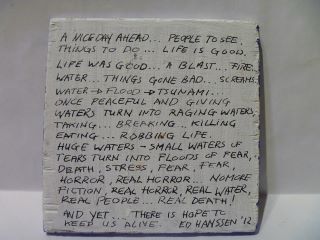 A NICE DAY AHEAD... PEOPLE TO SEE,
THINGS TO DO... LIFE IS GOOD.
LIFE WAS GOOD... A BLAST... FIRE...
WATER... THINGS GONE BAD... SCREAMS.
WATER → FLOOD → TSUNAMI...
ONCE PEACEFUL AND GIVING
WATERS TURN INTO RAGING WATERS,
TAKING... BREAKING... KILLING
EATING... ROBBING LIFE.
HUGE WATERS - SMALL WATERS OF
TEARS TURN INTO FLOODS OF FEAR,
DEATH, STRESS, FEAR, FEAR,
HORROR, REAL HORROR... NO MORE
FICTION, REAL HORROR, REAL WATER,
REAL PEOPLE... REAL DEATH!
AND YET... THERE IS HOPE TO
KEEP US ALIVE. ED HANSSEN '12